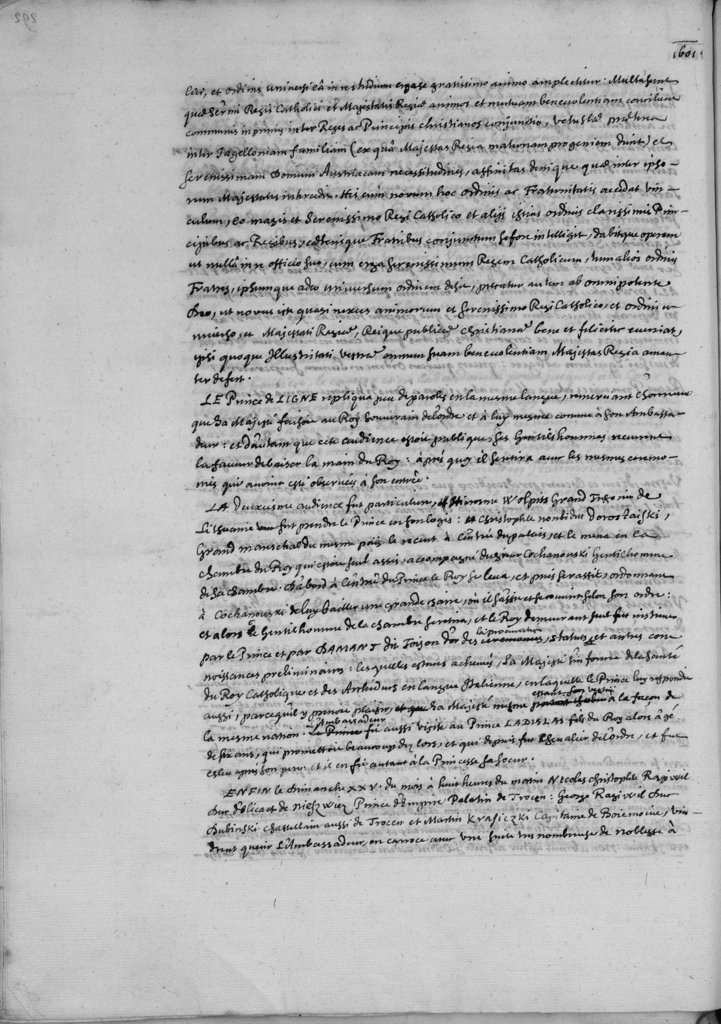 1601.
lico, et ordinis universi eâ in re studium erga se gratissimo animo amplectitur: Multa sunt
quæ Sermi Regis Catholici et Majestatis Regiæ animos et mutuam benevolentiam conciliant
communis inprimis inter Reges ac Principes christianos conjunctio, vetustas pristina
inter Jagelloniam familiam (ex quâ Majestas Regia maternam progeniem ducit) et
Serenissimam Domum Austriacam necessitudines, affinitas denique quæ inter ipso-
rum Majestates intercedit. His cum novum hoc ordinis ac Fraternitatis accedat vin-
culum, eo magis et Serenissimo Regi Catholico et alijs istius ordinis clarissimis Prin-
cipibus ac Regibus, cæterisque Fratribus conjunctum se fore intelligit, dabitque operam
ut nulla in re officio suo, cum erga Serenissimum Regem Catholicum, tum alios ordinis
Fratres, ipsumque adeo universum ordinem desit, precatur autem ab omnipotente
Deo, ut novus iste quasi nexus animorum et Serenissimo Regi Catholico, et ordini u-
niverso, et Majestati Regiæ, Reique publicæ christianæ bene et feliciter eveniat,
ipsi quoque Illustritati vestræ omnem suam benevolentiam Majestas Regia aman-
ter defert.
LE Prince de LIGNE repliqua peu de paroles en la mesme langue, remerciant l'honneur
que Sa Majesté faisoit au Roy souverain de l'ordre et à luy mesme comme à son Ambassa-
deur: et d'autant que cete audience estoit publique ses Gentilshommes receurent
la faveur de baiser la main du Roy: aprés quoy il se retira avec les mesmes ceremo-
nies qui avoient esté observées à son entrée.
LA deuxiesme audience fut particuliere, Hierosme Wolpits Grand Tresorier de
Lithuanie fut prendre le Prince en son logis: et Christophle Dorostaiski,
Grand mareschal du mesme païs le receut à l'entrée du palais, et le mena en la
chambre du Roy qui estoit seul assis, accompagné du sieur Cochanouski Gentilhomme
de sa chambre. D'abord à l'entrée du Prince le Roy se leva, et puis se rassit, ordonnant
à Cochanouski de luy bailler une grande chaire, où il s'assit et se couvrit selon son ordre:
et alors le Gentilhomme de la chambre se retira, et le Roy demeurant seul fut instruict
par le Prince et par DAMANT dit Toison d'or des ceremonies, statuts, et autres con-
noissances preliminaires: lesquelles estants achevées, Sa Majesté s'informa de la santé
du Roy Catholique et des Archiducs en langue Italienne, en laquelle le Prince luy respondit
aussi, parcequ'il y prenoit plaisir, et que Sa Majesté mesme à la façon de
la mesme nation. L'Ambassadeur fut aussi visiter au Prince LADISLAS fils du Roy alors âgé
de six ans, qui promettoit beaucoup dez lors, et qui depuis fut Chevalier de l'ordre, et fut
celuy apres son pere: et il en fit autant à la Princesse sa soeur.
ENFIN le Dimanche XXV. du mois à huit heures du matin Nicolas Christophle Raziwil
Duc d'Olica et de Nieswiez Prince d'Empire Palatin de Trocen: George Raziwil Duc
Dubinski Chastellain aussi de Trocen et Martin Krasiczki Capitaine de Boiemovie, vin-
drent querir l'Ambassadeur, en carroce avec une suite tres nombreuse de noblesse à